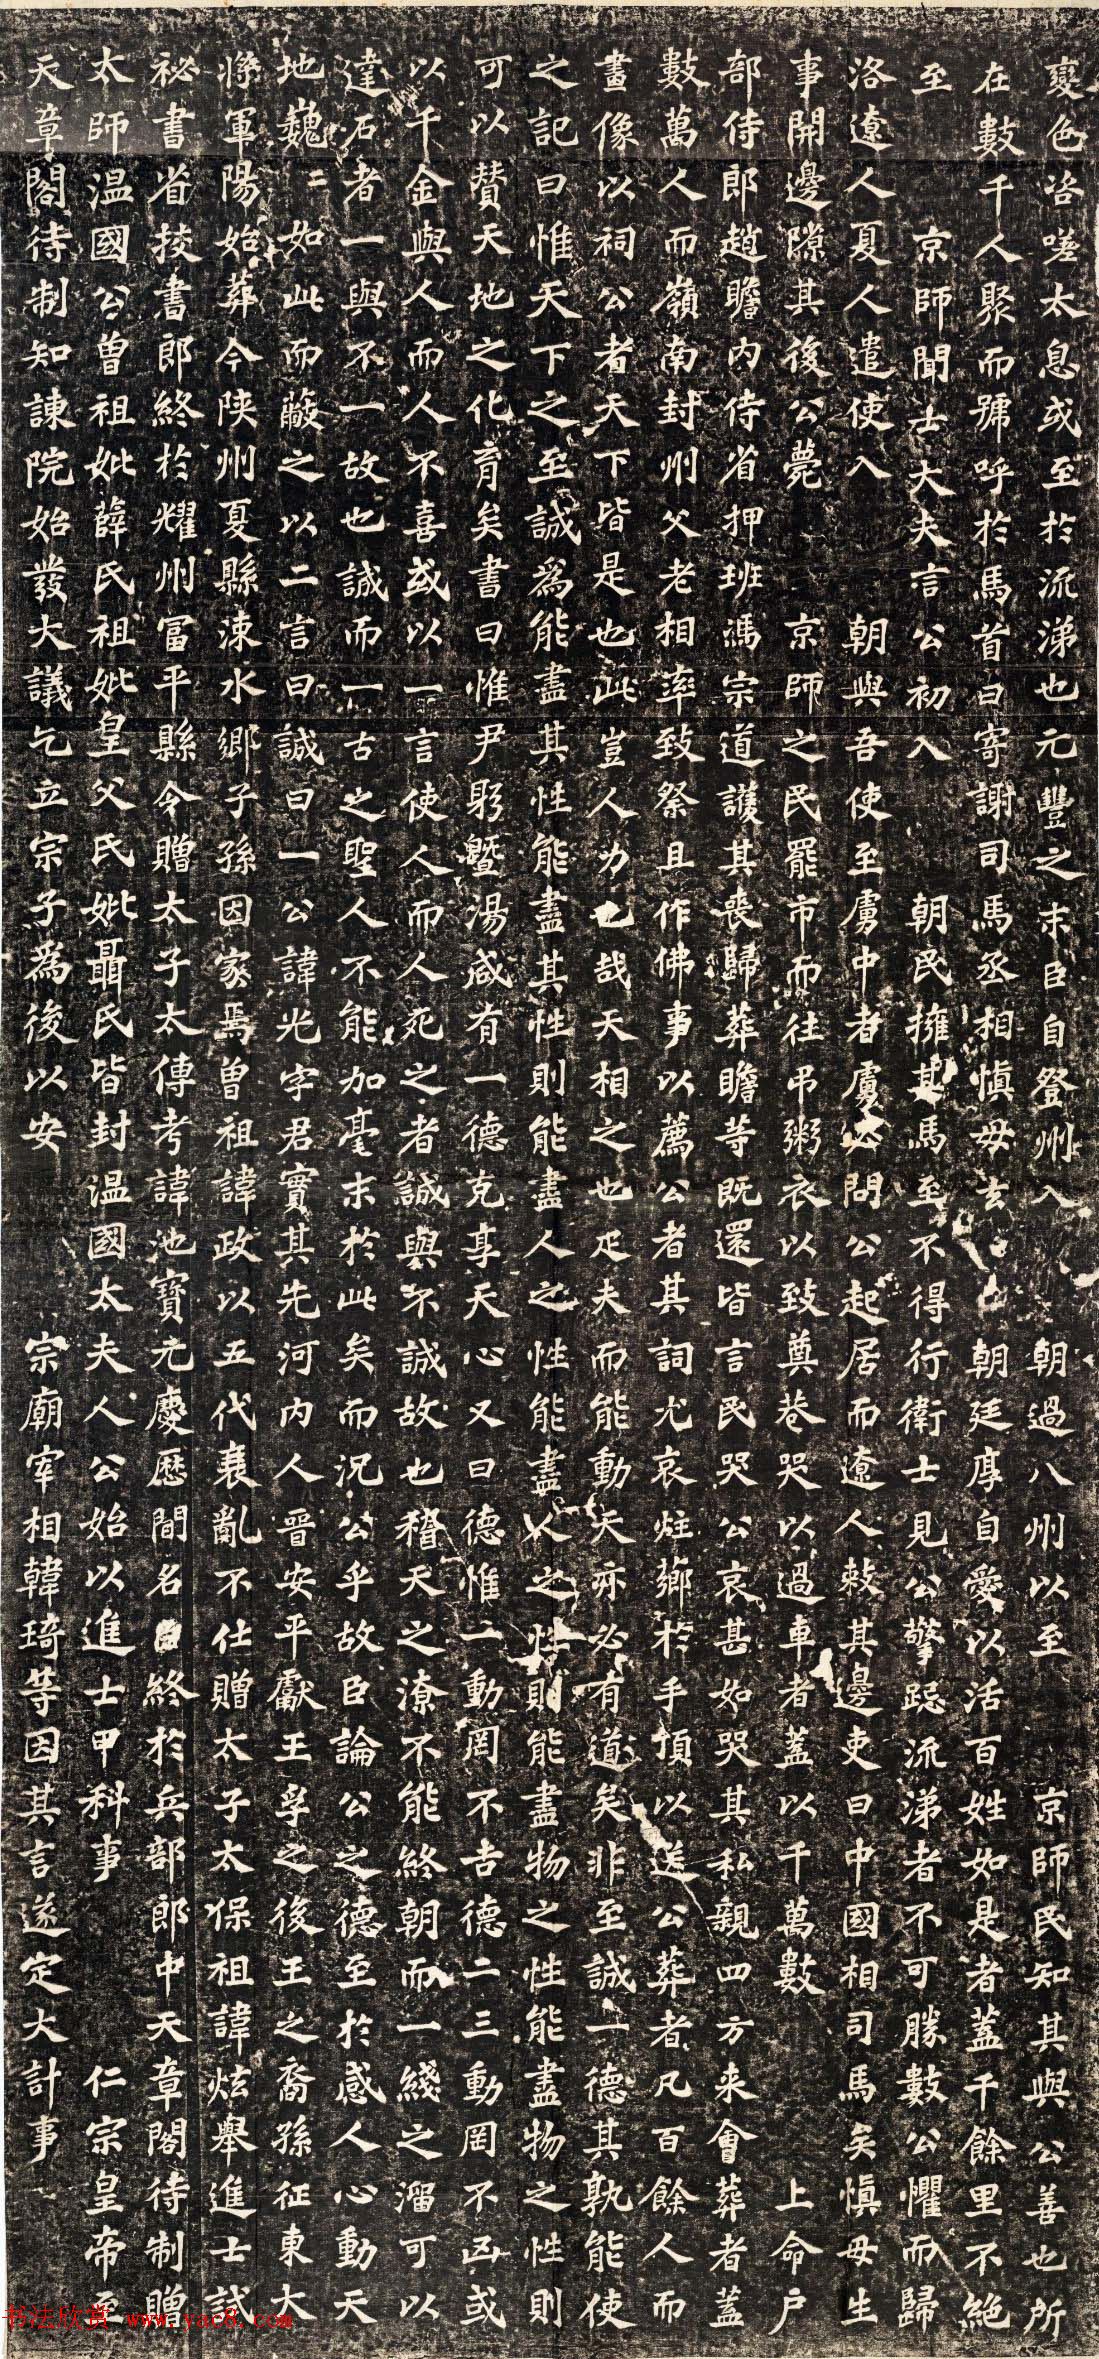 變色咨嗟太息或至於流涕也元豐之末臣自登州入朝過八州以至京師民知其與公善也所
在數千人聚而號呼於馬首曰寄謝司馬丞相慎毋去朝廷厚自愛以活百姓如是者蓋千餘里不絕
至京師聞士大夫言公初入朝民擁其馬至不得行衛士見公擎跽流涕者不可勝數公懼而歸
洛遼人夏人遣使入朝與吾使至虜中者虜必問公起居而遼人敕其邊吏曰中國相司馬矣慎毋生
事開邊隙其後公薨京師之民罷市而往弔粥衣以致奠巷哭以過車者蓋以千萬數上命戶
部侍郎趙瞻內侍省押班馮宗道護其喪歸葬瞻等既還皆言民哭公哀甚如哭其私親四方來會葬者蓋
數萬人而嶺南封州父老相率致祭且作佛事以薦公者其詞尤哀炷薌於手頂以送公葬者凡百餘人而
畫像以祠公者天下皆是也此豈人力也哉天相之也疋夫而能動天亦必有道矣非至誠一德其孰能使
之記曰惟天下之至誠為能盡其性能盡其性則能盡人之性能盡人之性則能盡物之性能盡物之性則
可以贊天地之化育矣書曰惟尹躬暨湯咸有一德克享天心又曰德惟一動罔不吉德二三動罔不凶或
以千金與人而人不喜或以一言使人而人死之者誠與不誠故也稽天之潦不能終朝而一綫之溜可以
達石者一與不一故也誠而一古之聖人不能加毫末於此矣而況公乎故臣論公之德至於感人心動天
地巍〻如此而蔽之以二言曰誠曰一公諱光字君實其先河內人晉安平獻王孚之後王之裔孫征東大
將軍陽始葬今陝州夏縣涑水鄉子孫因家焉曾祖諱政以五代衰亂不仕贈太子太保祖諱炫舉進士試
祕書省挍書郎終於耀州富平縣令贈太子太傅考諱池寶元慶歷間名臣終於兵部郎中天章閣待制贈
太師溫國公曾祖妣薛氏祖妣皇父氏妣聶氏皆封溫國太夫人公始以進士甲科事仁宗皇帝至
天章閣待制知諫院始發大議乞立宗子為後以安宗廟宰相韓琦等因其言遂定大計事
书法欣赏 www.yac8.com